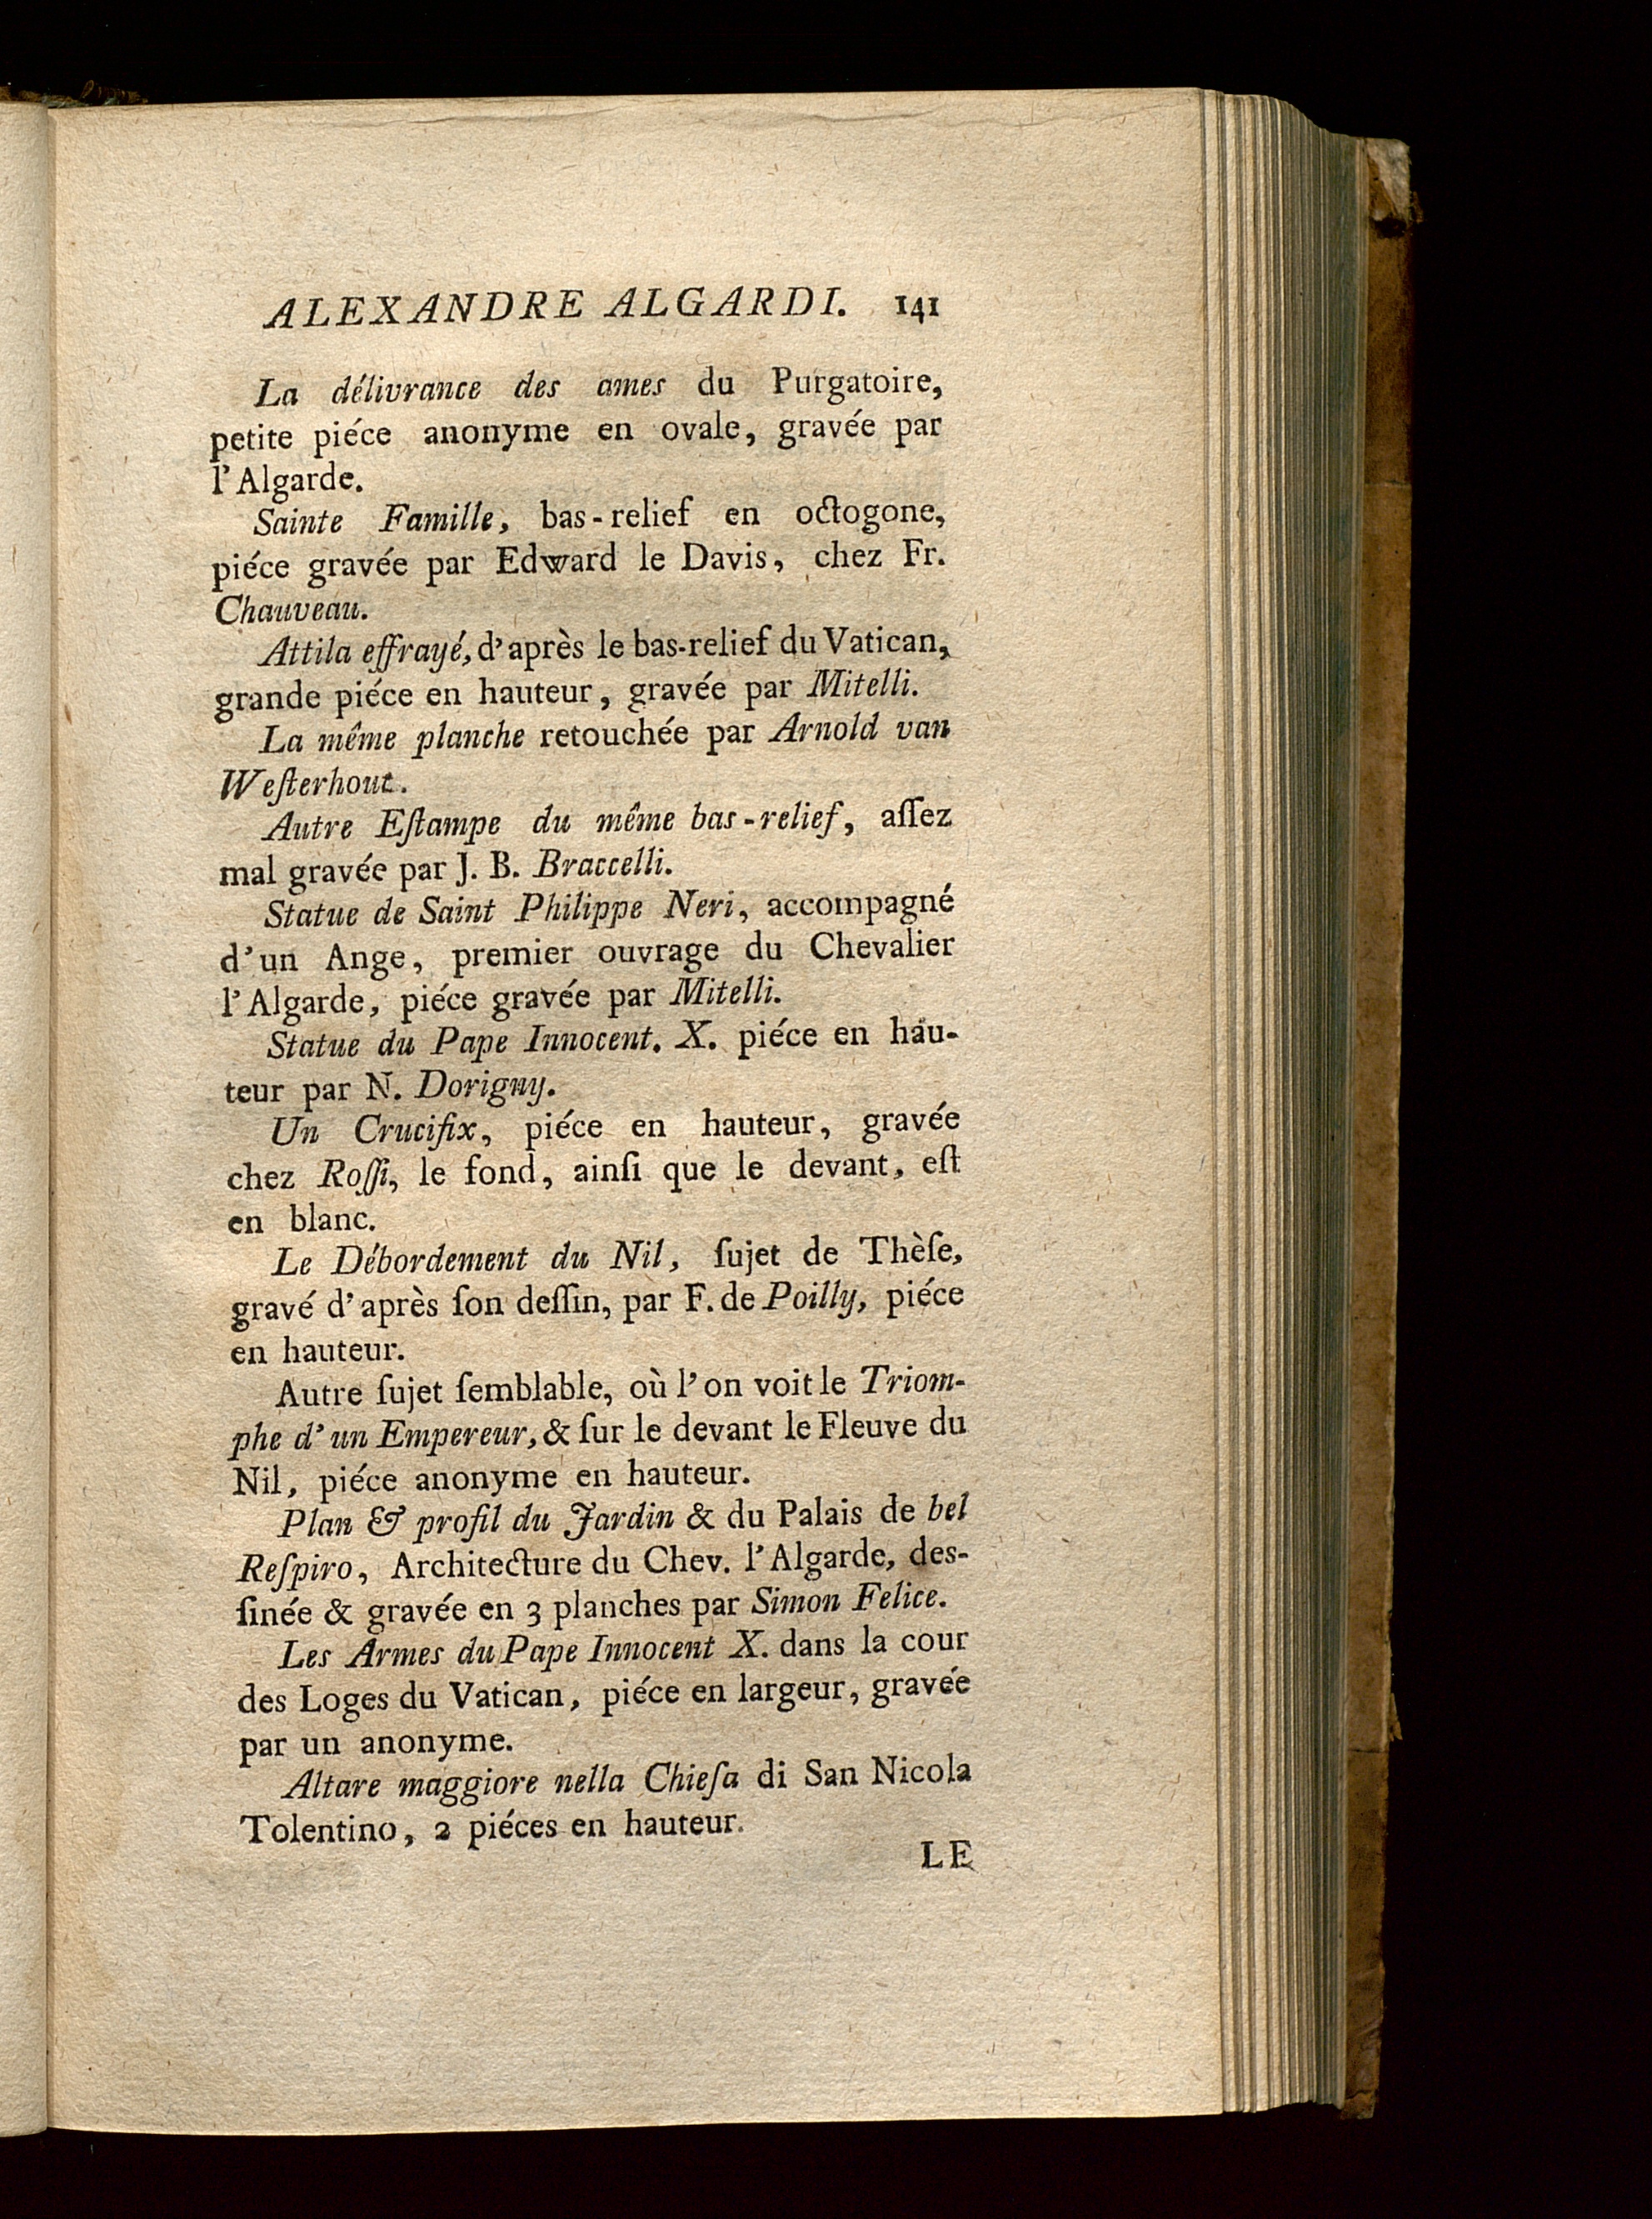 ALEXANDRE ALGARDI. 141
La délivrance des ames du Purgatoire,
petite piéce anonyme en ovale, gravée par
l'Algarde.
Sainte Famille, bas-relief en octogone,
piéce gravée par Edward le Davis, chez Fr.
Chauveau.
Attila effrayé, d'après le bas-relief du Vatican,
grande piéce en hauteur, gravée par Mitelli.
La même planche retouchée par Arnold van
Weſterhout.
Autre Eſtampe du même bas-relief, aſſez
mal gravée par J. B. Braccelli.
Statue de Saint Philippe Neri, accompagné
d'un Ange, premier ouvrage du Chevalier
l'Algarde, piéce gravée par Mitelli.
Statue du Pape Innocent. X. piéce en hau-
teur par N. Dorigny.
Un Crucifix, piéce en hauteur, gravée
chez Roſſi, le fond, ainſi que le devant, eſt
en blanc.
Le Débordement du Nil, ſujet de Thèſe,
gravé d'après ſon deſſin, par F. de Poilly, piéce
en hauteur.
Autre ſujet ſemblable, où l'on voit le Triom-
phe d'un Empereur, & ſur le devant le Fleuve du
Nil, piéce anonyme en hauteur.
Plan & profil du Jardin & du Palais de bel
Reſpiro, Architecture du Chev. l'Algarde, des-
ſinée & gravée en 3 planches par Simon Felice.
Les Armes du Pape Innocent X. dans la cour
des Loges du Vatican, piéce en largeur, gravée
par un anonyme.
Altare maggiore nella Chieſa di San Nicola
Tolentino, 2 piéces en hauteur.
LE